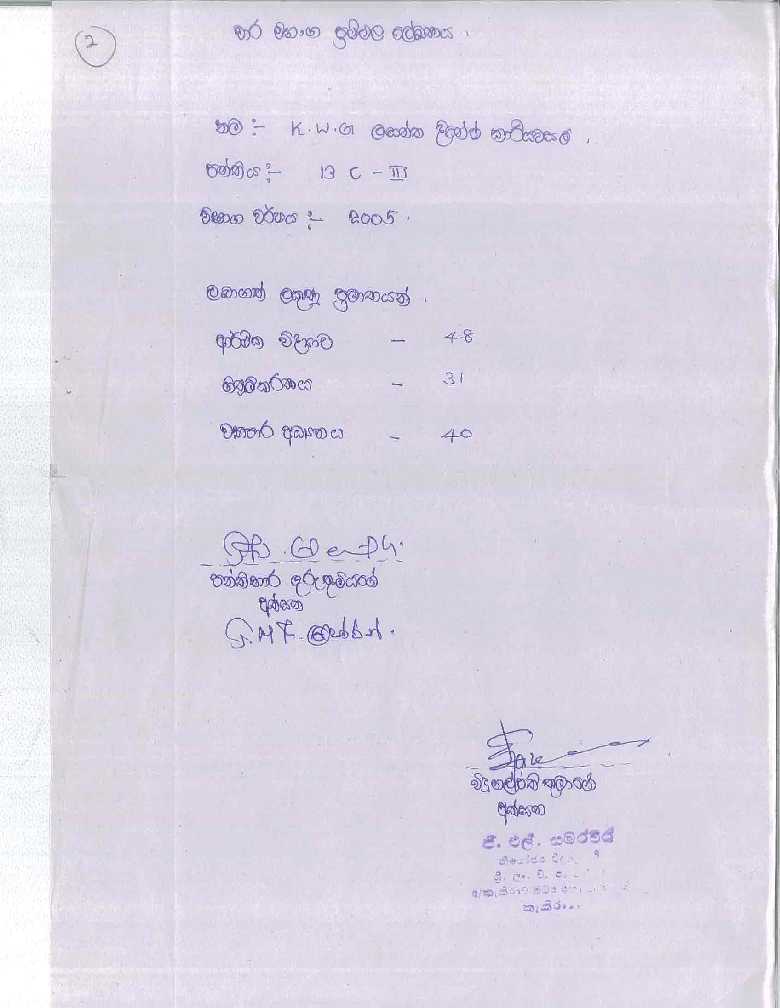 2
තර මහංග ප්‍රතිඵල ලේඛනය .
නම :- K.W.G ලසන්ත දිනේෂ් කාරියවසම් .
පන්තිය :- 13 C - III
විභාග වර්ෂය :- 2005 .
ලබාගත් ලකුණු ප්‍රමාණයන් .
ආර්ථික විද්‍යාව - 48
ගිණුම්කරණය - 31
ව්‍යාපාර අධ්‍යනය - 40
පන්තිභාර ගුරුතුමියගේ
අත්සන
විදුහල්පතිතුමාගේ
අත්සන
ජී. එල්. සමරවීර